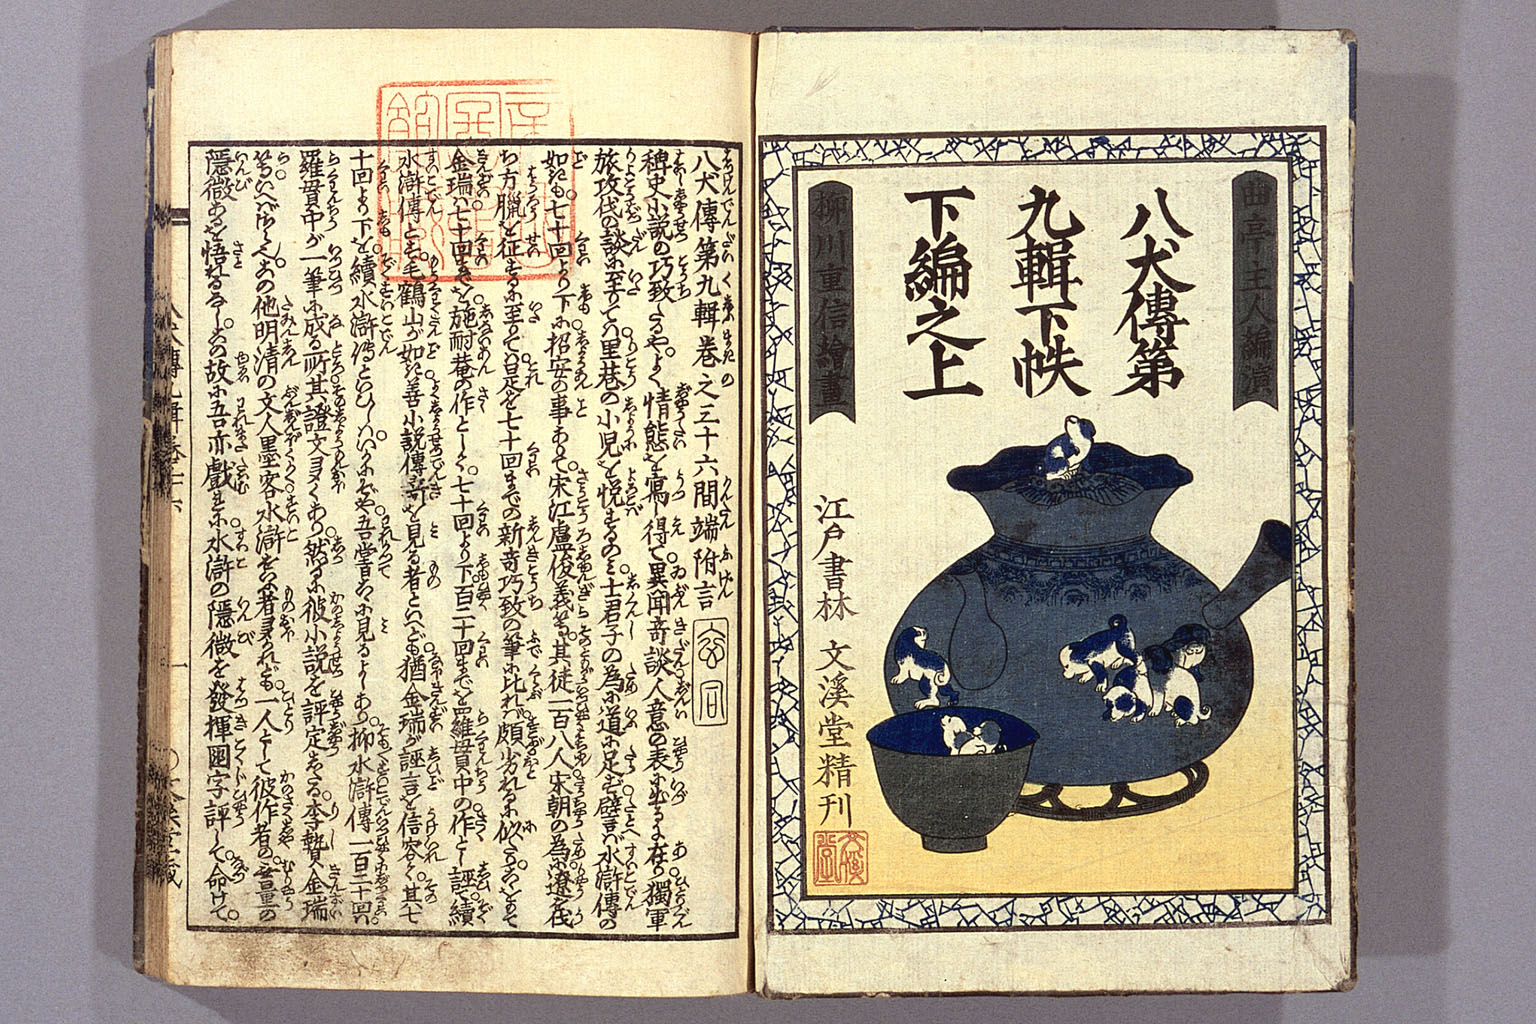 曲亭主人編演
八犬傳第
九輯下帙
下編之上
柳川重信繪畫
江戸書林 文溪堂精刊
文溪堂
八犬傳第九輯巻之三十六間端附言
稗史小説の巧致たるや。よく情態を寫し得て。異聞奇談人意の表に出るに在り。獨軍
旅攻伐の談に至りては。里巷の小児を悦するのミ。士君子の為に道に足らず。譬ば水滸傳の
如きも。七十回より下に。招安の事ありて。宋江盧俊義等。其徒一百八人。宋朝の為に。遼を伐
ち方臘を征するに至りては。是を七十回までの。新奇巧致の筆に比れば。頗劣れるに似たり。をもて
金瑞ハ。七十回までを。施耐菴の作とし。七十回より下。百二十回までを。羅貫中の作とし。誣て續
水滸傳とす。毛鶴山が如き。善小説傳奇を見る者といへども。猶金瑞が誣言を信容て。其七
十回より下を。續水滸傳といひしハいかにぞや。吾曹首に見るよしあり。抑水滸傳一百二十回ハ。
羅貫中が一筆に成る所。其證文多くあり。然るに彼小説を評定したる。李贄金瑞
等ハいへばさら也。その他明清の文人墨客。水滸を云云者多かれども。一人として彼作者の
隱微あるを悟れるなし。この故に吾亦戯に水滸の隱微を發揮。國字評して命けて。